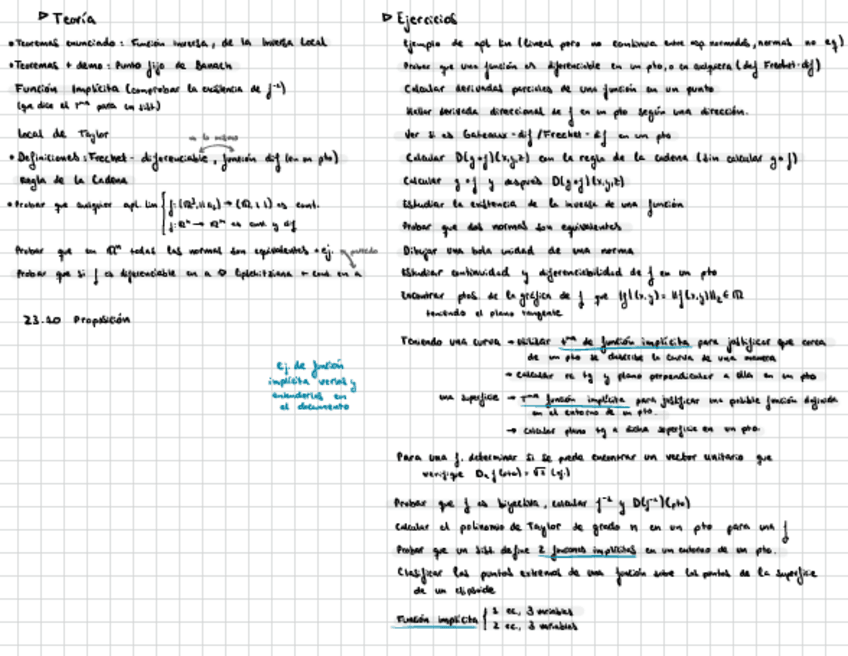 ▷ Teoría
• Teoremas enunciado: Función inversa, de la Inversa Local
• Teoremas + demo: Punto fijo de Banach
Función Implícita (comprobar la existencia de f⁻¹)
(que dice el rma para un sist)
Local de Taylor
→ lo mismo
• Definiciones: Frechet-diferenciable, función dif (en un pto)
Regla de la Cadena
• Probar que cualquier apl. lin { f: (ℝ², || ||₂) → (ℝ, | |) es cont.
f: ℝⁿ → ℝᵐ es cont y dif
Probar que en ℝⁿ todas las normas son equivalentes + ej.
Probar que si f es diferenciable en a ⇒ Lipschitziana + cont en a
23.20 Proposición
ej. de función
implícita verlos y
entenderlos en
el documento
▷ Ejercicios
Ejemplo de apl lin (lineal pero no continua entre esp normados, normas no eq)
Probar que una función es diferenciable en un pto, o en cualquiera (def Frechet-dif)
Calcular derivadas parciales de una función en un punto
Hallar derivada direccional de f en un pto según una dirección.
Ver si es Gateaux-dif / Frechet-dif en un pto
Calcular D(g∘f)(x,y,z) con la regla de la cadena (sin calcular g∘f)
Calcular g∘f y después D(g∘f)(x,y,z)
Estudiar la existencia de la inversa de una función
Probar que dos normas son equivalentes
Dibujar una bola unidad de una norma
Estudiar continuidad y diferenciabilidad de f en un pto
Encontrar ptos de la gráfica de f que
teniendo el plano tangente
Teniendo una curva → Utilizar tma de función implícita para justificar que cerca
de un pto se describe la curva de una manera
→ calcular rc tg y plano perpendicular a ella en un pto
una superficie → Tma función implícita para justificar una posible función definida
en el entorno de un pto.
→ calcular plano tg a dicha superficie en un pto.
Para una f. determinar si se puede encontrar un vector unitario que
verifique
Probar que f es biyectiva, calcular f⁻¹ y D(f⁻¹)(pto)
Calcular el polinomio de Taylor de grado n en un pto para una f
Probar que un sist define 2 funciones implícitas en un entorno de un pto.
Clasificar los puntos extremos de una función sobre los puntos de la superficie
de un elipsoide
Función implícita { 1 ec, 3 variables
2 ec, 3 variables